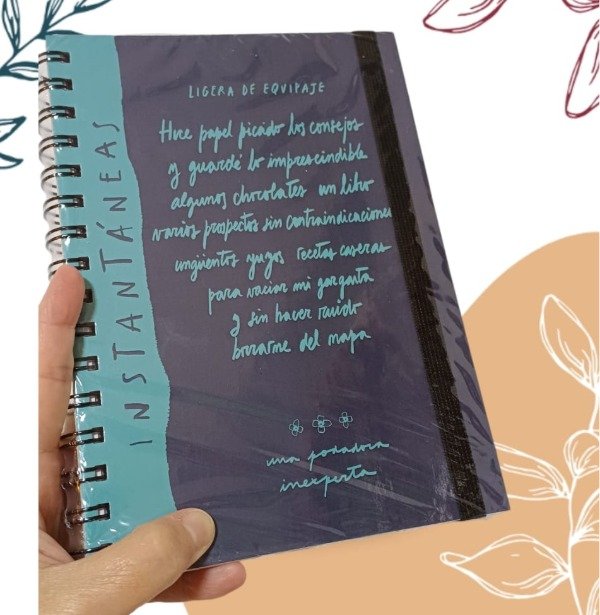 INSTANTÁNEAS
LIGERA DE EQUIPAJE
Hice papel picado los consejos
y guardé lo imprescindible
algunos chocolates un libro
varios prospectos sin contraindicaciones
ungüentos yuyos recetas caseras
para vaciar mi garganta
y sin hacer ruido
borrarme del mapa
una podadora
inexperta